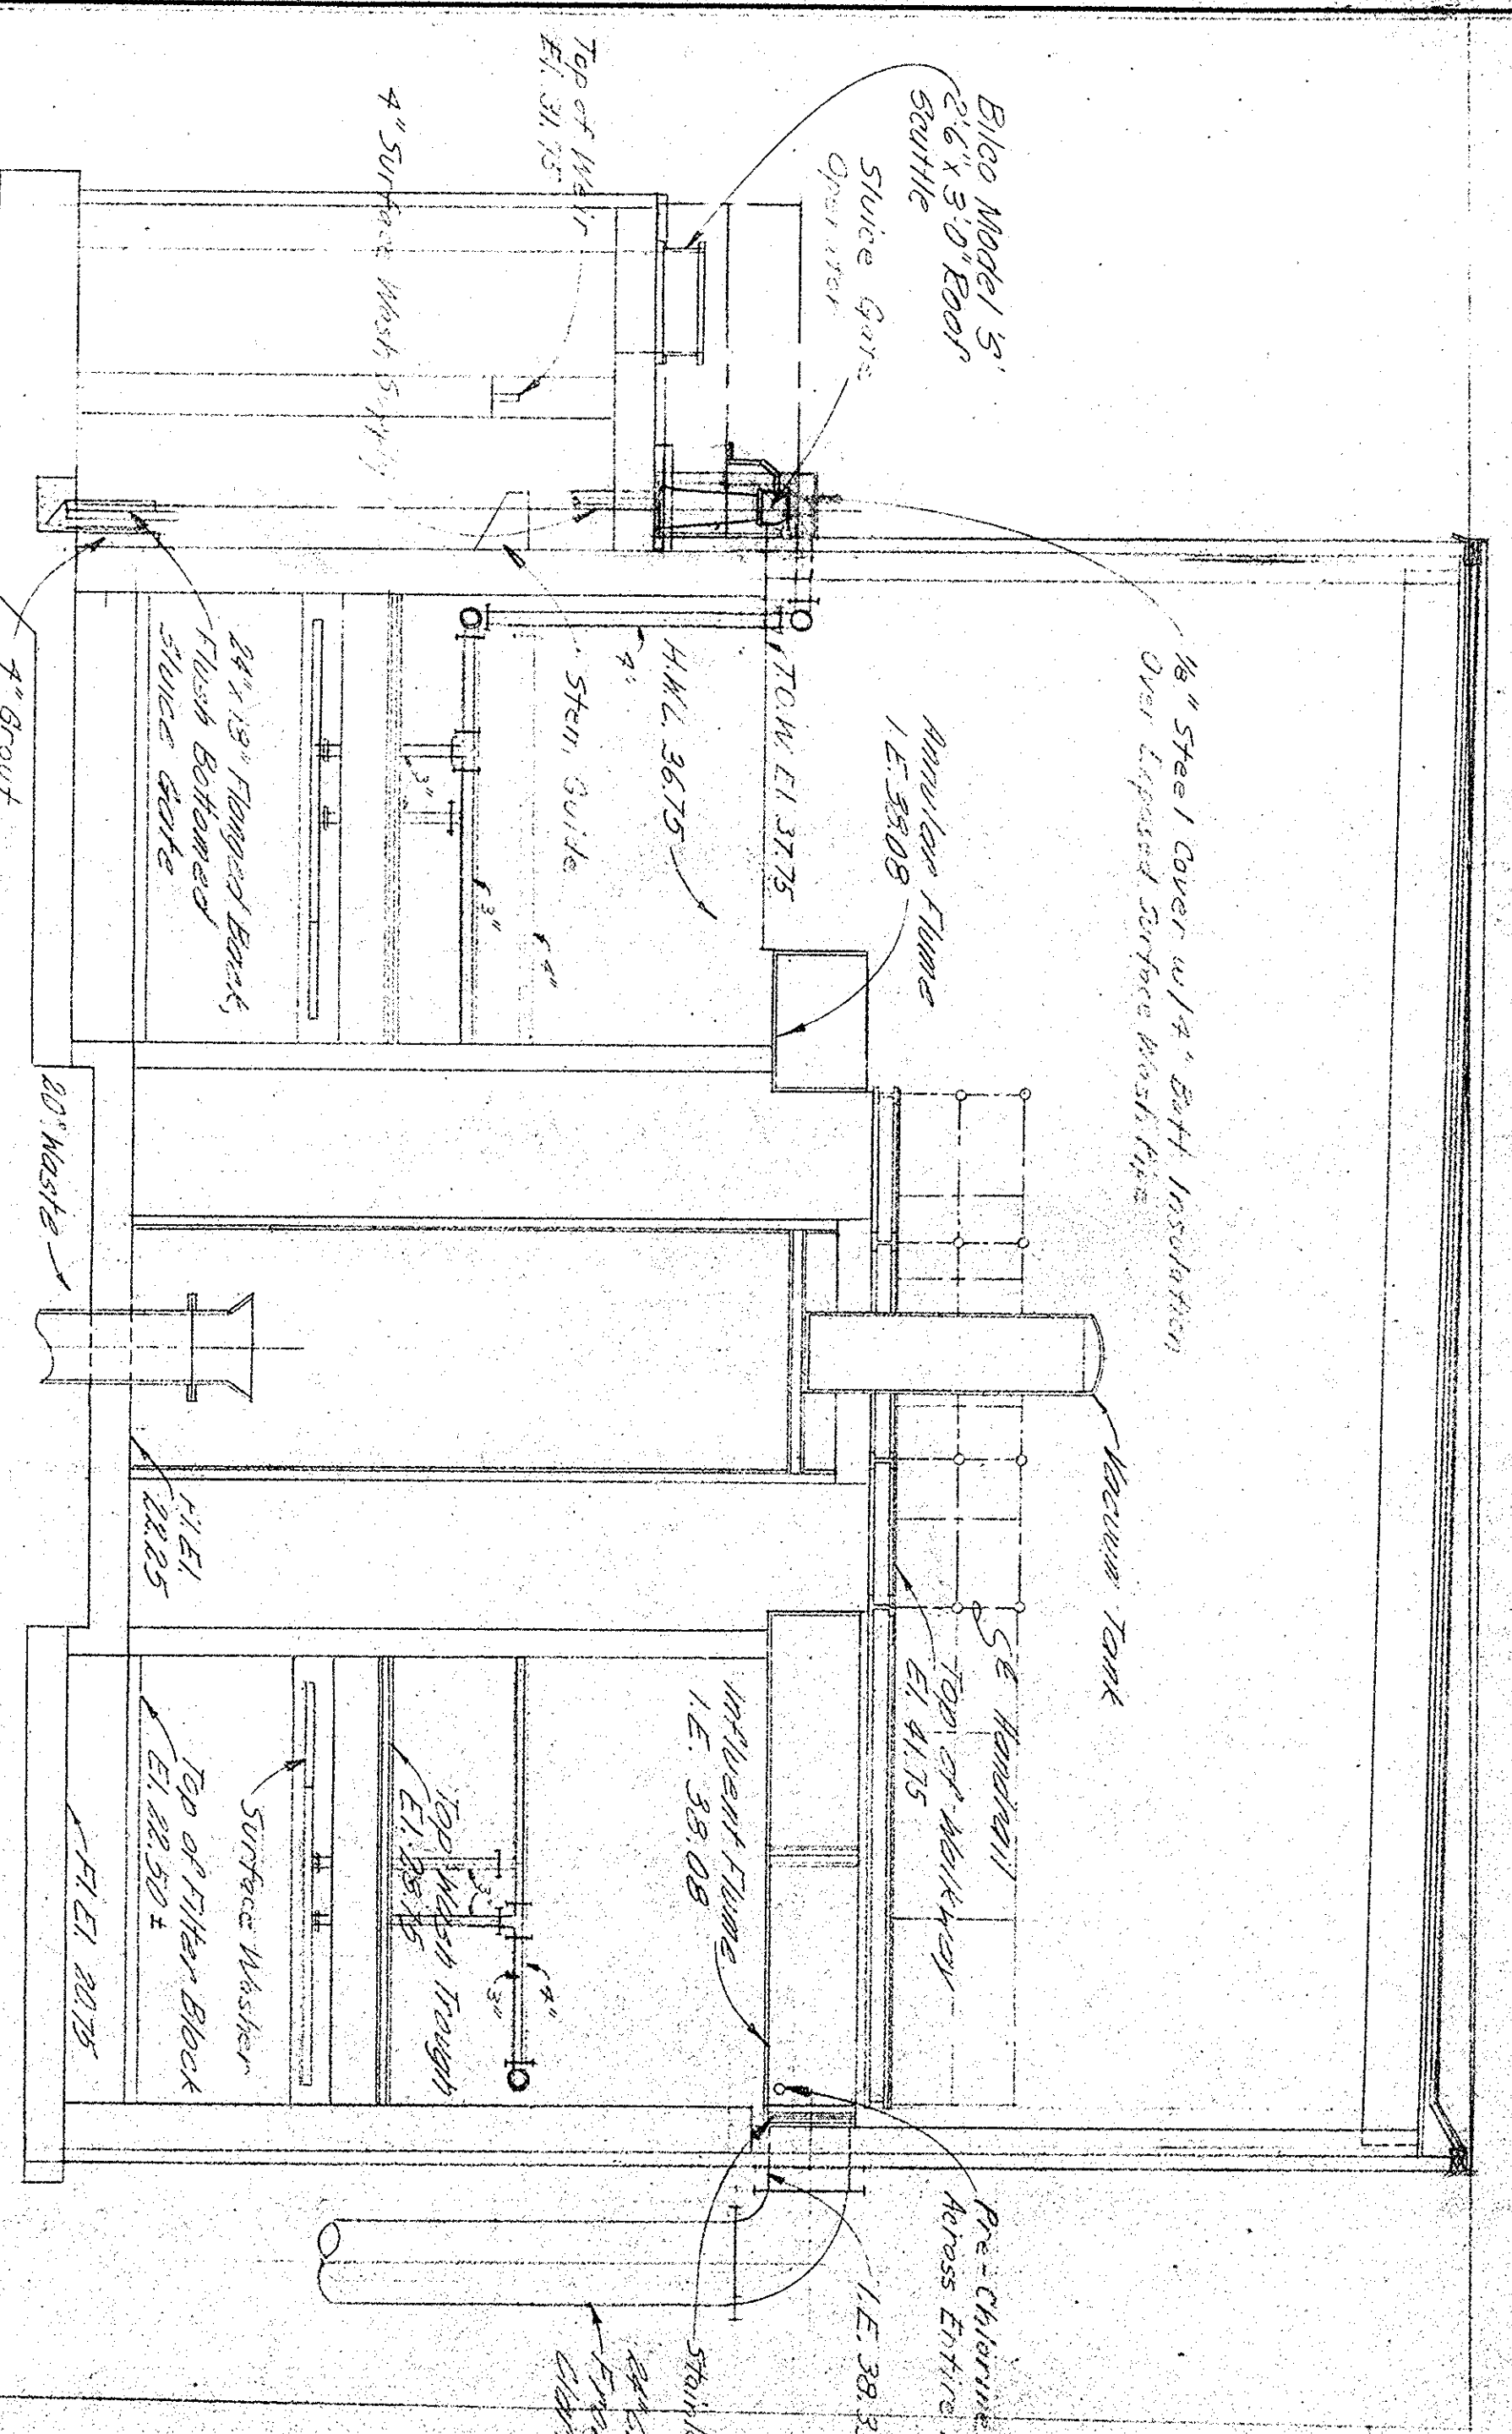 Bilco Model 'S'
2'6" x 3'0" Roof
Scuttle
Sluice Gate
Operator
Top of Weir
El. 31.75
4" Surface Wash Supply
1/8" Steel Cover w/4" Batt Insulation
Over Exposed Surface Wash Pipe
Annular Flume
I.E. 38.08
T.O.W. El. 37.75
H.W.L. 36.75
4"
Stem Guide
4"
3"
3"
24" x 18" Flanged Back,
Flush Bottomed
Sluice Gate
4" Grout
20" Waste
Vacuum Tank
Fl. El.
22.25
S.E. Handrail
Top of Walkway
El. 41.75
Influent Flume
I.E. 38.08
Top Wash Trough
El. 28.75
3"
4"
3"
Surface Washer
Top of Filter Block
El. 22.50 ±
Fl. El. 20.75
Pre-Chlorine
Across Entire
I.E. 38.3
Stainl